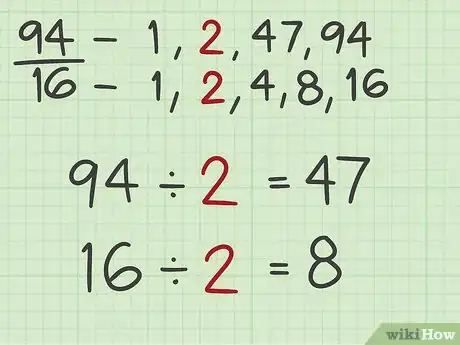 94 – 1, 2, 47, 94
16 – 1, 2, 4, 8, 16
94 ÷ 2 = 47
16 ÷ 2 = 8
wikiHow